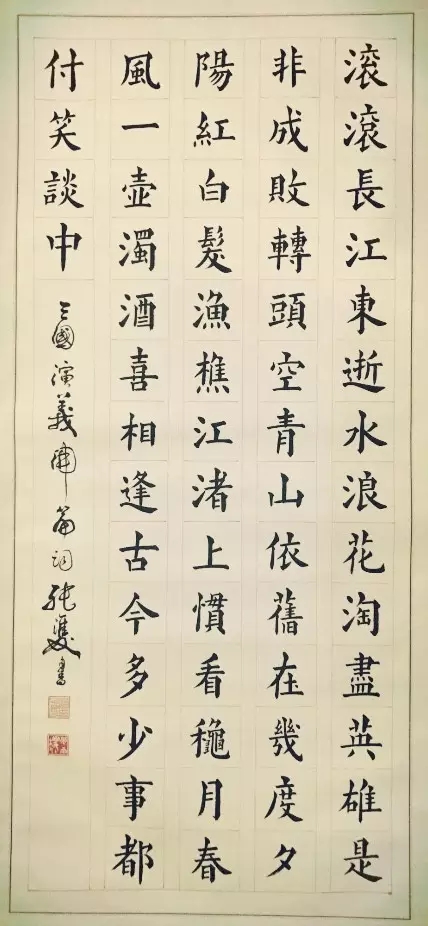 滚滾長江東逝水浪花淘盡英雄是
非成敗轉頭空青山依舊在幾度夕
陽紅白髮漁樵江渚上慣看穐月春
風一壺濁酒喜相逢古今多少事都
付笑談中
三國演義開篇詞張雙書